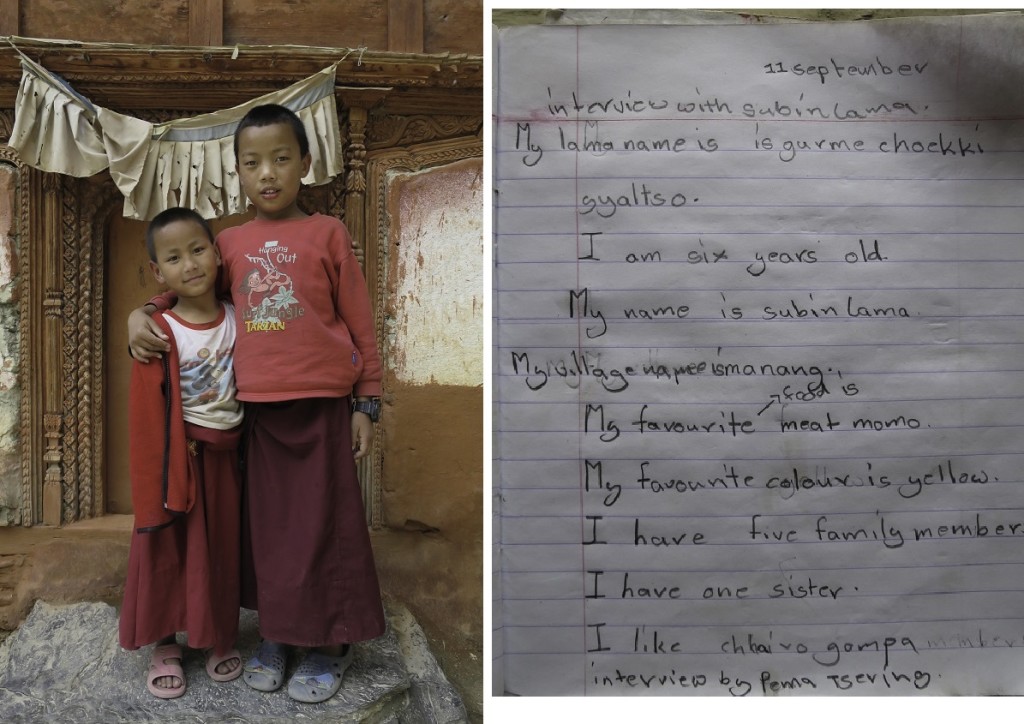 Hanging
Out
Jungle
TARZAN
11 september
interview with subin lama.
My lama name is is gurme choekki
gyaltso.
I am six years old.
My name is subin lama.
My village name is manang.
food is
My favourite meat momo.
My favourite colour is yellow.
I have five family member
I have one sister.
I like chhairo gompa member
interview by Pema Tsering.